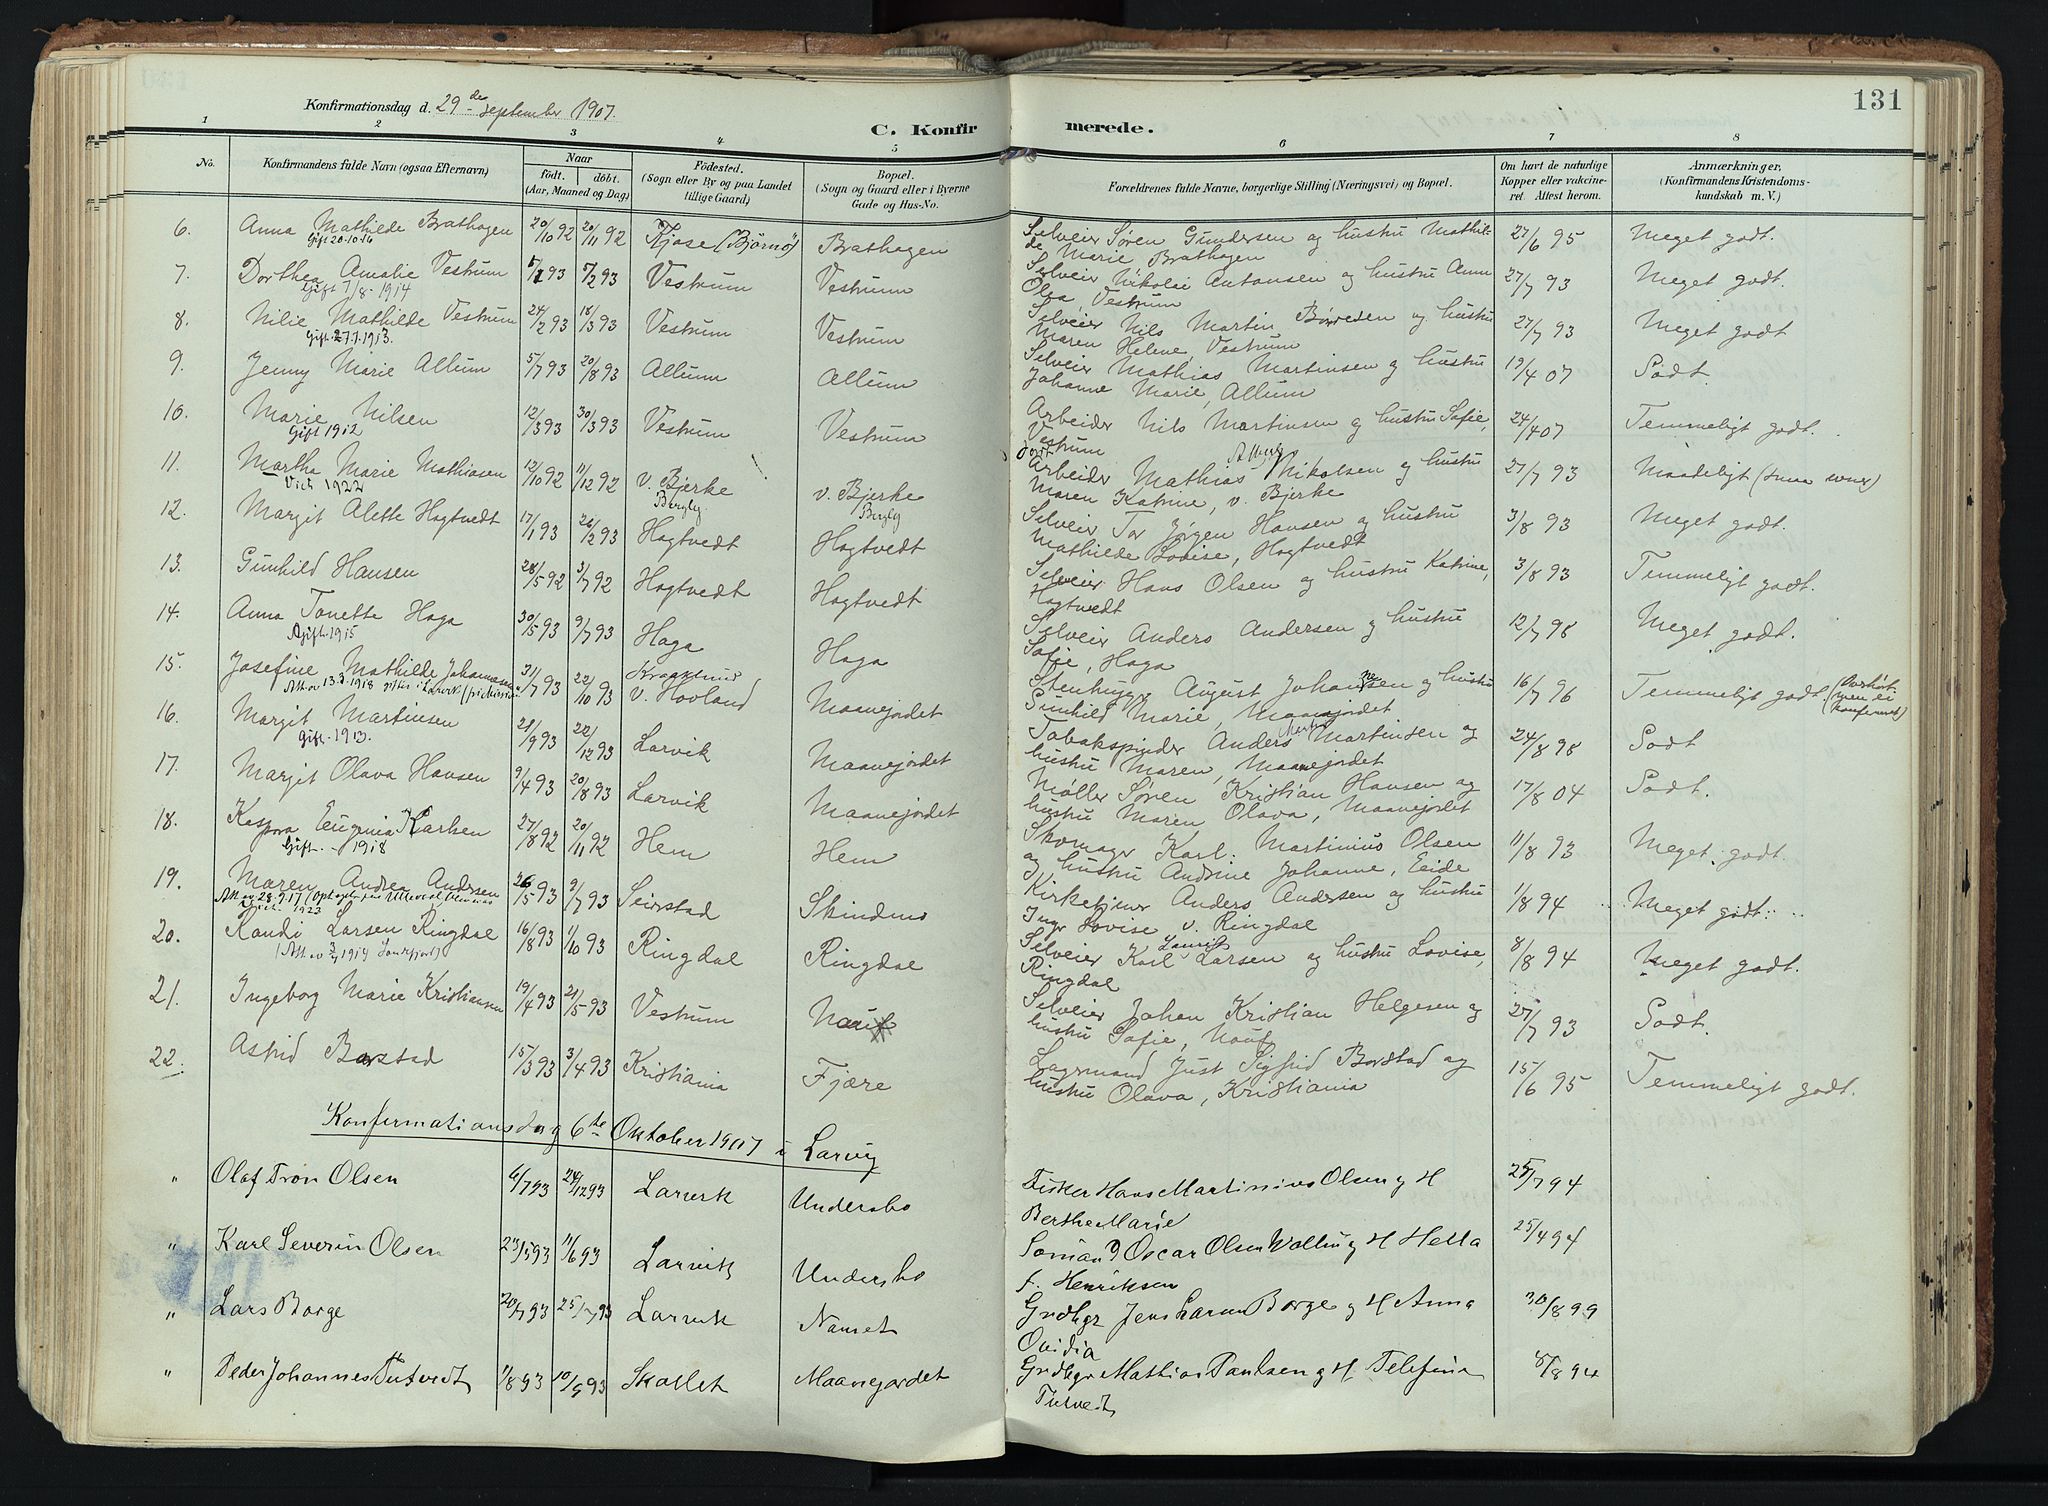 131
Konfirmationsdag d. 29de september 1907.
C. Konfirmerede.
1 2 3 4 5 6 7 8
No. Konfirmandens fulde Navn (ogsaa Efternavn) Naar födt. döbt. (Aar, Maaned og Dag) Födested. (Sogn eller By og paa Landet tillige Gaard) Bopæl. (Sogn og Gaard eller i Byerne Gade og Hus-No. Forældrenes fulde Navne, borgerlige Stilling (Næringsvei) og Bopæl. Om havt de naturlige Kopper eller vakcineret. Attest herom. Anmærkninger, (Konfirmandens Kristendomskundskab m. V.)
6. Anna Mathilde Brathagen 20/10 92 20/11 92 Kjose (Björnö) Brathagen Selveier Søren Gundersen og hustru Mathilde Marie Brathagen 27/6 95 Meget godt.
Gift 20-10-16
7. Dorthea Amalie Vestrum 5/1 93 5/2 93 Vestrum Vestrum Selveier Nikolai Antonsen og hustru Anna Olea, Vestrum 27/7 93 Meget godt.
Gift 7/8-1914
8. Nilie Mathilde Vestrum 24/2 93 18/3 93 Vestrum Vestrum Selveier Nils Martin Børresen og hustru Maren Helene, Vestrum 27/7 93 Meget godt
Gift 27.7.1913.
9. Jenny Marie Allum 5/7 93 20/8 93 Allum Allum Selveier Mathias Martinsen og hustru Johanne Marie, Allum 19/4 07 Godt.
10. Marie Nilsen 12/3 93 30/3 93 Vestrum Vestrum Arbeider Nils Martinsen og hustru Sofie, Vestrum 24/4 07 Temmeligt godt.
Gift 1912
11. Martha Marie Mathiasen 12/10 92 11/12 92 v. Bjerke v. Bjerke Arbeider Mathias Nikolsen og hustru Maren Katrine, v. Bjerke 27/7 93 Maadeligt
Viet 1922
12. Margit Alette Hogtvedt 17/1 93 26/2 93 Bergly Hogtvedt Bergly Hogtvedt Selveier Tor Jörgen Hansen og hustru Mathilde Lovise, Hogtvedt 3/8 93 Meget godt.
13. Gunhild Hansen 28/5 92 3/7 92 Hogtvedt Hogtvedt Selveier Hans Olsen og hustru Katrine, Hogtvedt 3/8 93 Temmeligt godt.
14. Anna Tonette Haga 30/5 93 9/7 93 Haga Haga Selveier Anders Andersen og hustru Sofie, Haga 12/7 98 Meget godt.
Gift 1915
15. Josefine Mathilde Johannesen 31/7 93 22/10 93 v. Hovland Maanejordet Stenhugger August Johansen og hustru Gunhild Marie, Maanejordet 16/7 96 Temmeligt godt
16. Margit Martinsen 21/9 93 22/12 93 Larvik Maanejordet Tobakspinder Anders Martinsen og hustru Maren, Maanejordet 24/8 98 Godt
Gift 1913.
17. Margit Olava Hansen 9/4 93 20/8 93 Larvik Maanejordet Møller Søren Kristian Hansen og hustru Maren Olava, Maanejordet 17/8 04 Godt.
18. Kaspara Eugenia Karlsen 27/8 92 20/11 92 Hem Hem Skomager Karl Martinius Olsen og hustru Andrine Johanne, Eeide 11/8 93 Meget godt.
Gift. - 1918
19. Maren Andrea Andersen 26/5 93 9/7 93 Seierstad Skindmo Kirketjener Anders Andersen og hustru Inger Lovise v. Ringdal 1/8 94 Meget godt.
20. Randi Larsen Ringdal 16/8 93 1/10 93 Ringdal Ringdal Selveier Karl Laurits Larsen og hustru Lovise, Ringdal 8/8 94 Meget godt.
21. Ingeborg Marie Kristiansen 19/4 93 21/5 93 Vestrum Nauf Selveier Johan Kristian Helgesen og hustru Sofie, Nauf 27/7 93 Godt.
22. Astrid Borstad 15/3 93 3/4 93 Kristiania Fjære Lagermand Just Sigfrid Borstad og hustru Olava, Kristiania 15/6 95 Temmeligt godt.
Konfirmationsdag 6te Oktober 1907 i Larvig
" Olaf Tron Olsen 6/7 93 24/12 93 Larvik Undersbo Fisker Hans Martinius Olsen og H Berthe Marie 25/7 94
" Karl Severin Olsen 23/5 93 11/6 93 Larvik Undersbo Sømand Oscar Olsen Wolling og H Hella f. Henriksen 25/4 94
" Lars Borge 20/7 93 25/7 93 Larvik Nanset Grdbgr Jens Larsen Borge og H Anna Ovidia 30/8 99
" Peder Johannes Tutvedt 1/8 93 10/9 93 Skallet Maanejordet Grdbgr Mathias Paulsen og H. Telefine Tutvedt 5/8 94